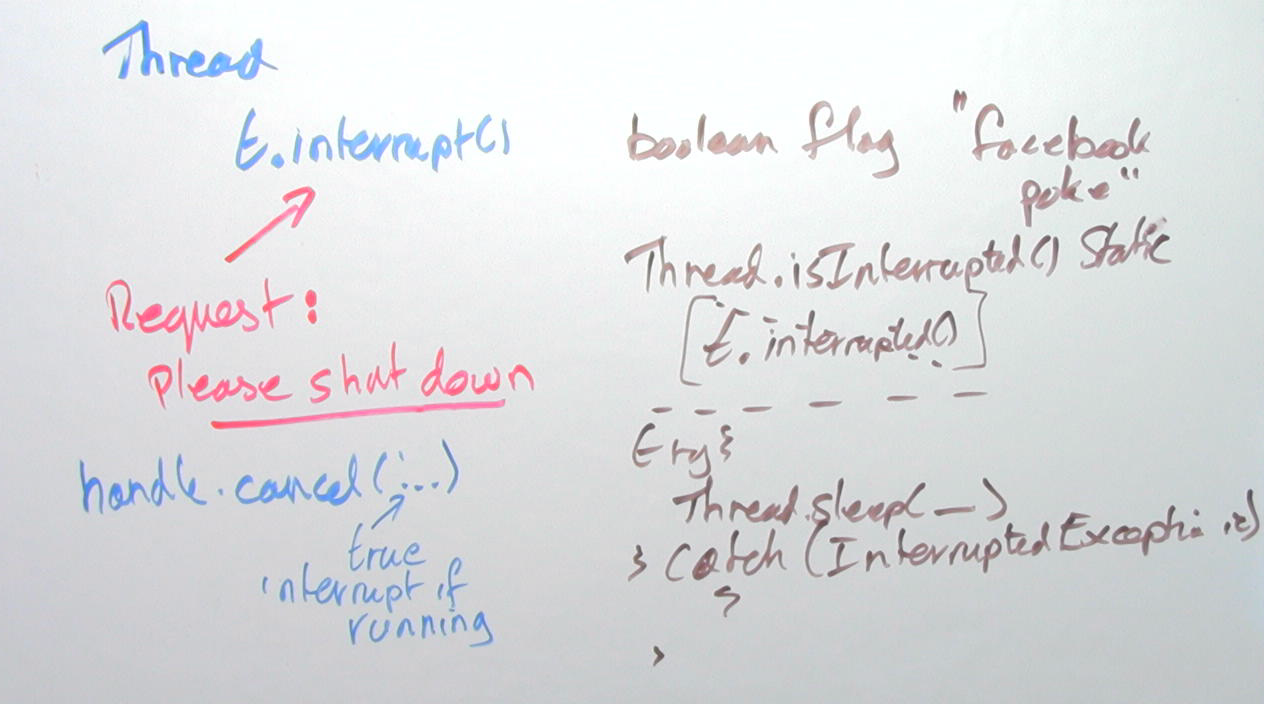 Thread
t.interrupt()
Request:
please shut down
handle.cancel(...)
true
interrupt if
running
boolean flag "facebook
poke"
Thread.isInterrupted() static
[t.interrupted()]
try {
Thread.sleep( — )
} catch (InterruptedException ie) {
}